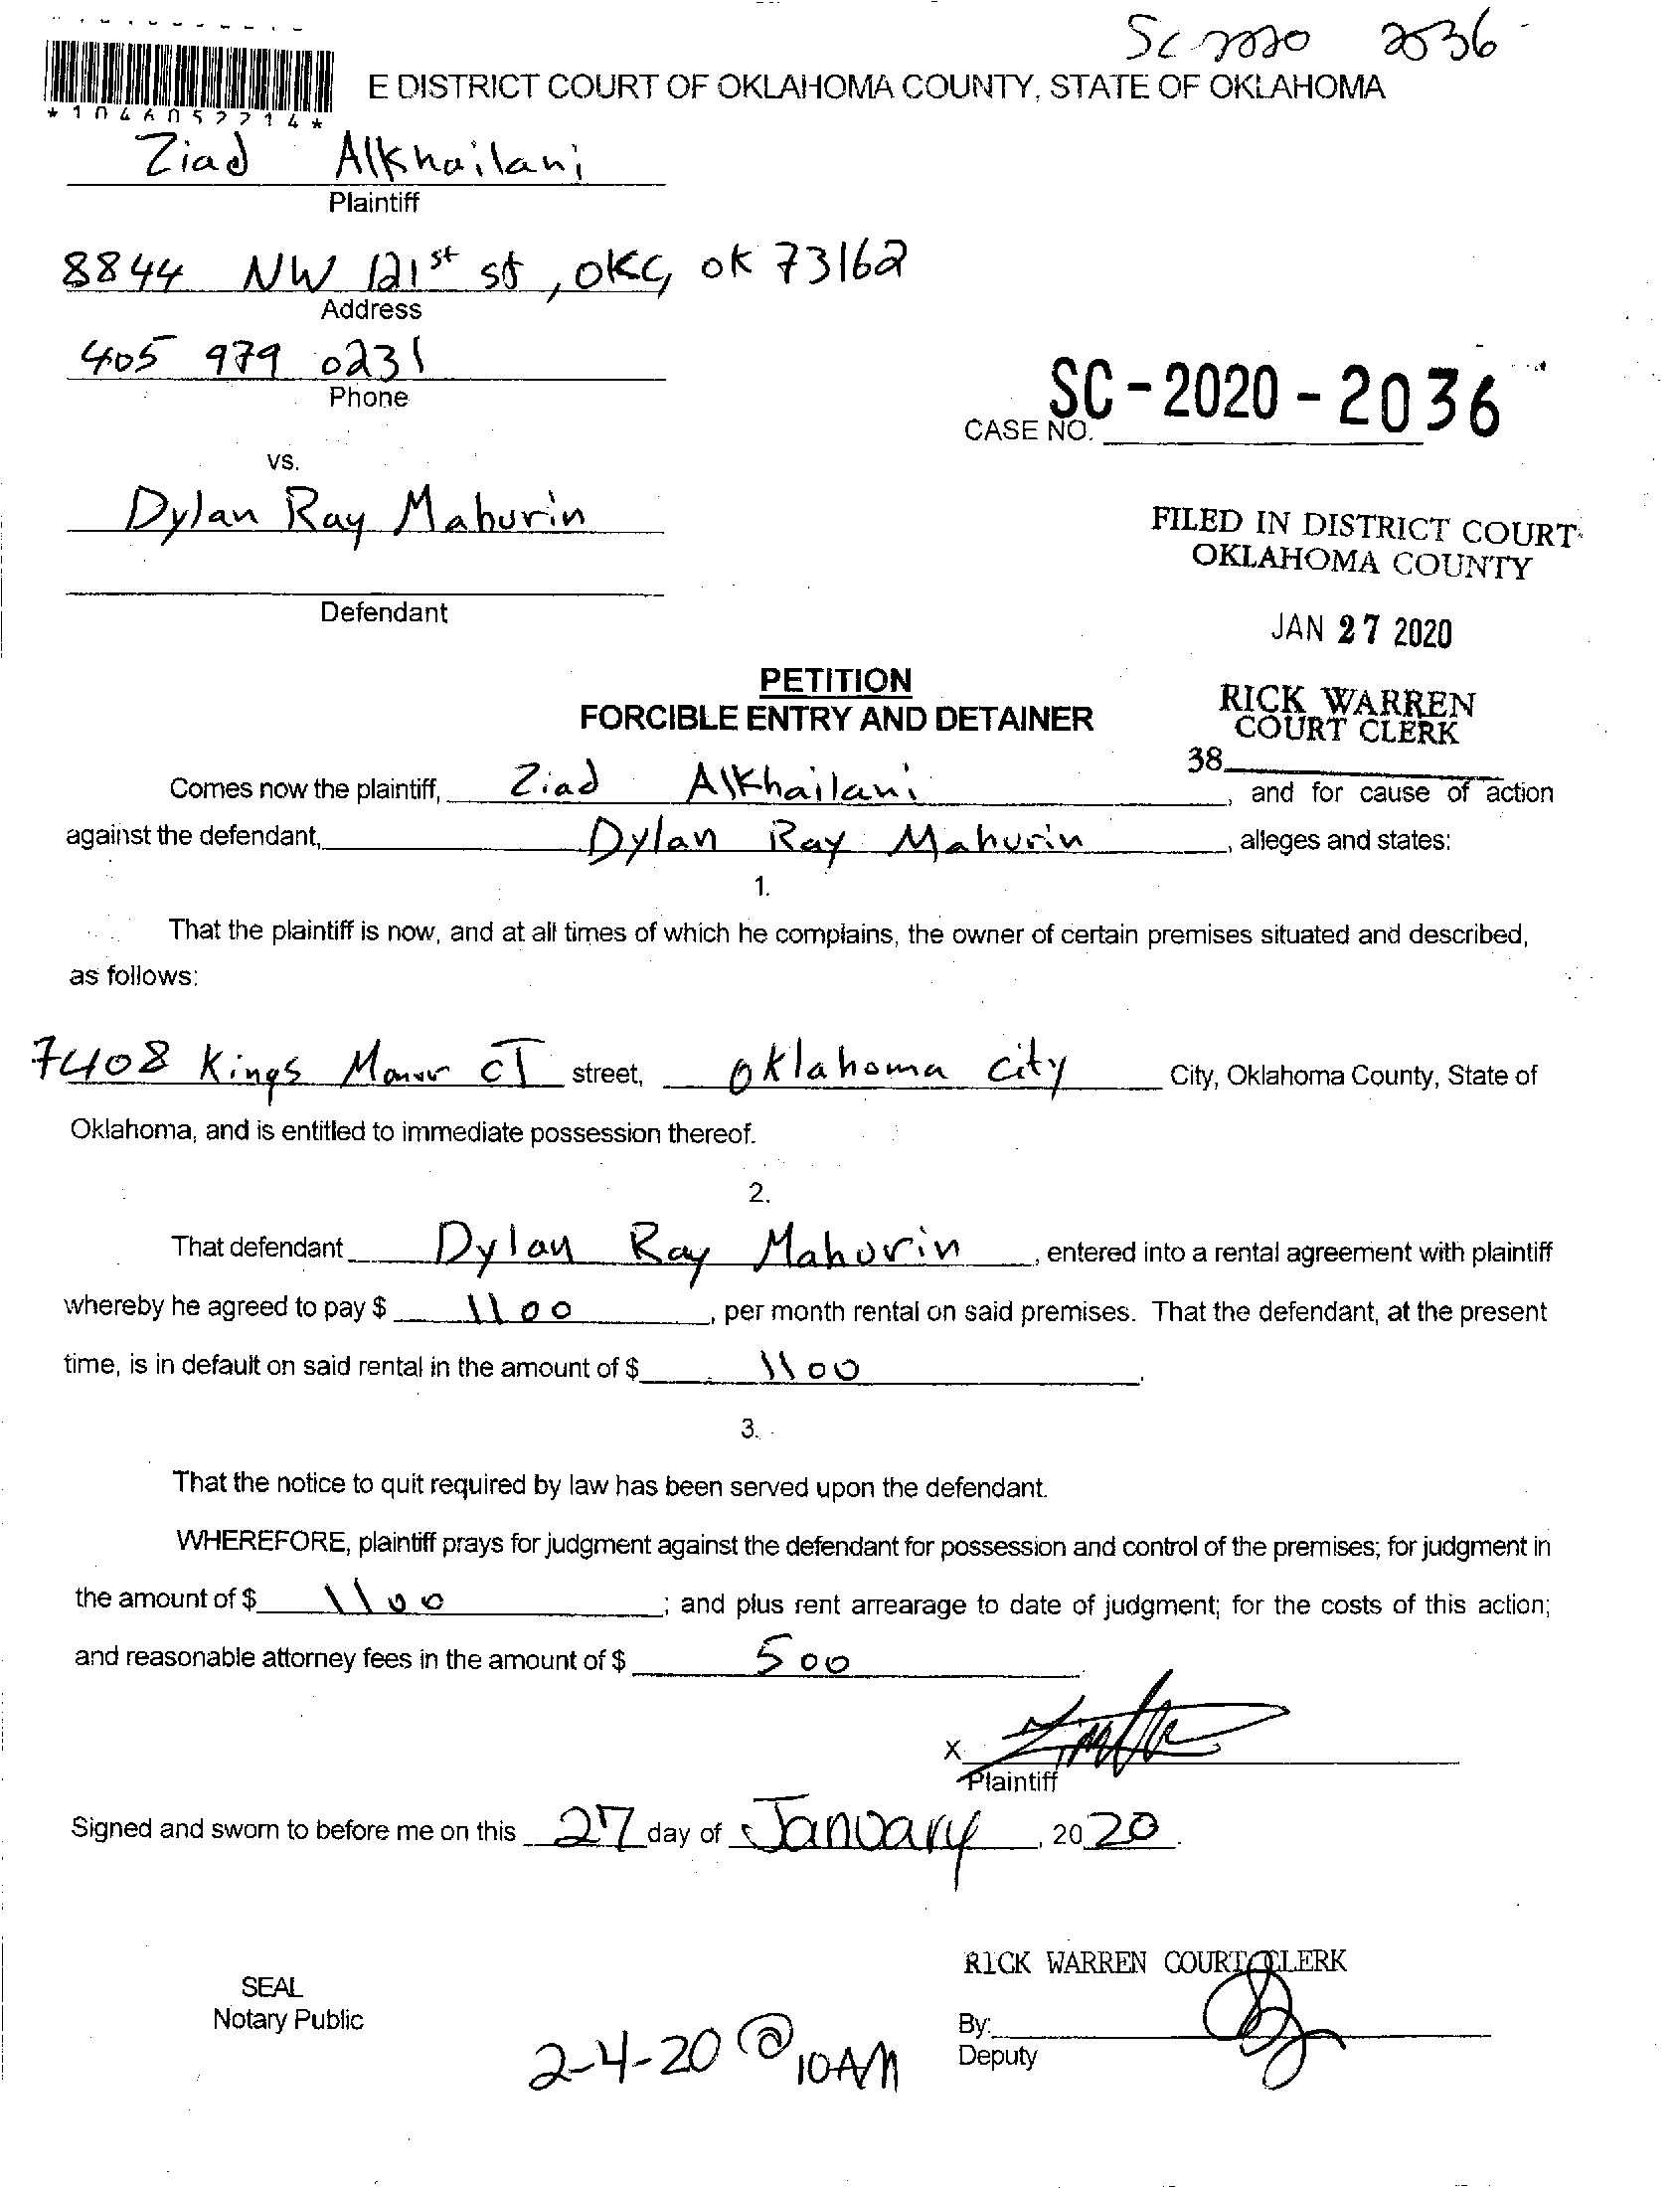 SC 2020 2036
E DISTRICT COURT OF OKLAHOMA COUNTY, STATE OF OKLAHOMA
*1046052214*
Ziad Alkhailani
Plaintiff
8844 NW 121st st, OKC, OK 73162
Address
405 979 0231
Phone
SC-2020-2036
CASE NO.
vs.
Dylan Ray Mahurin
FILED IN DISTRICT COURT
OKLAHOMA COUNTY
Defendant
JAN 27 2020
PETITION
FORCIBLE ENTRY AND DETAINER
RICK WARREN
COURT CLERK
38
Comes now the plaintiff, Ziad Alkhailani, and for cause of action
against the defendant, Dylan Ray Mahurin, alleges and states:
1.
That the plaintiff is now, and at all times of which he complains, the owner of certain premises situated and described,
as follows:
7408 Kings Manor CT street, Oklahoma city City, Oklahoma County, State of
Oklahoma, and is entitled to immediate possession thereof.
2.
That defendant Dylan Ray Mahurin, entered into a rental agreement with plaintiff
whereby he agreed to pay $ 1100, per month rental on said premises. That the defendant, at the present
time, is in default on said rental in the amount of $ 1100.
3.
That the notice to quit required by law has been served upon the defendant.
WHEREFORE, plaintiff prays for judgment against the defendant for possession and control of the premises; for judgment in
the amount of $ 1100; and plus rent arrearage to date of judgment; for the costs of this action;
and reasonable attorney fees in the amount of $ 500
X
Plaintiff
Signed and sworn to before me on this 27 day of January, 2020.
RICK WARREN COURT CLERK
SEAL
Notary Public
By:
Deputy
2-4-20 @ 10AM